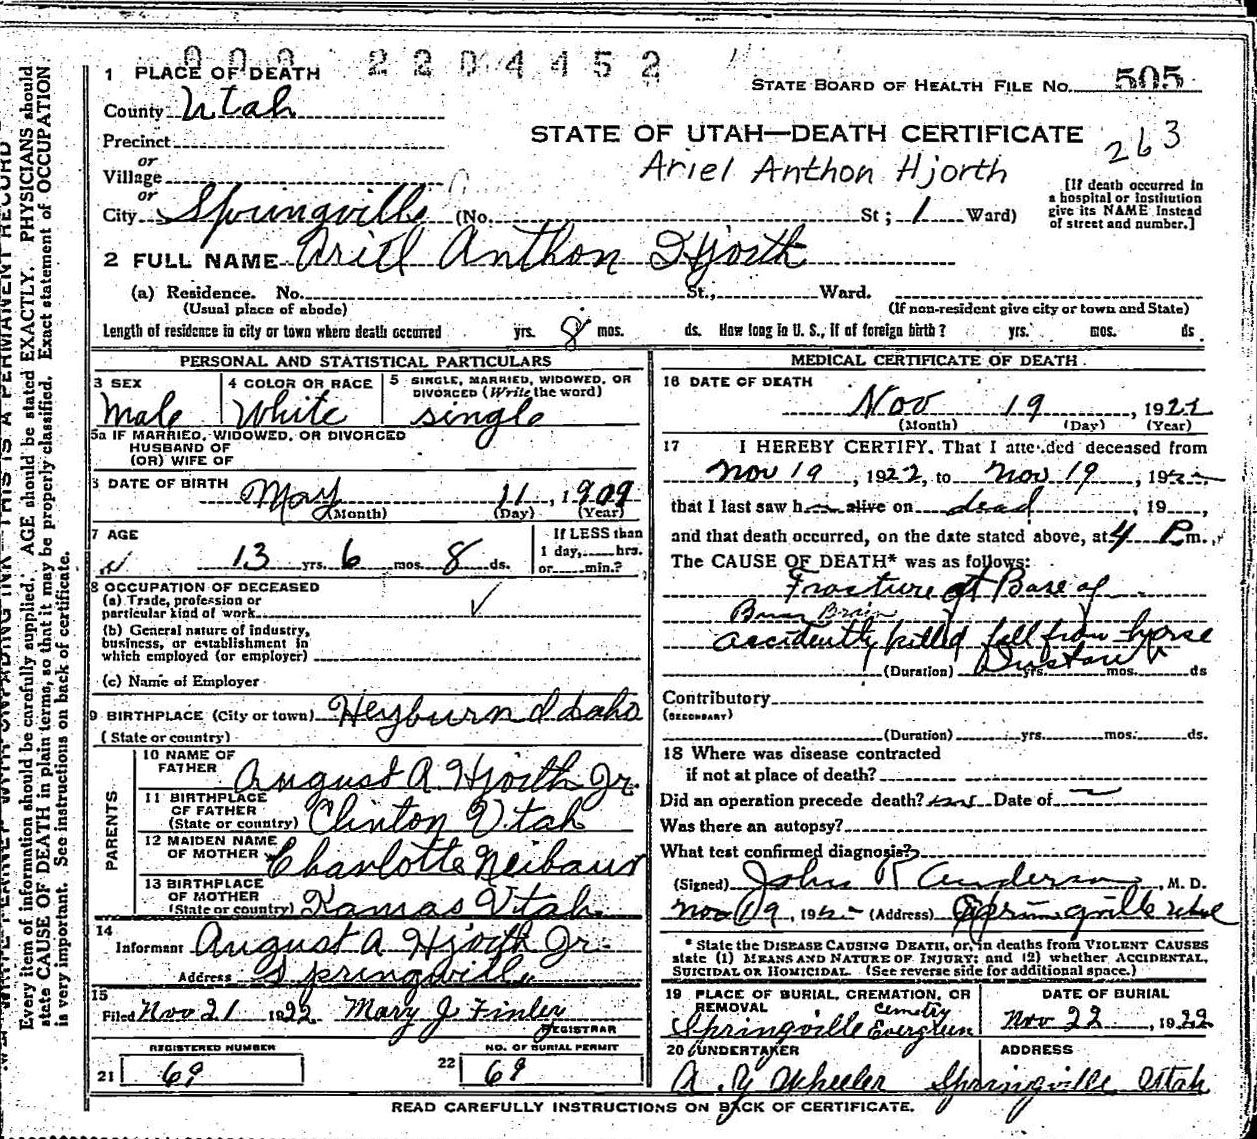 003 2204452
1 PLACE OF DEATH
STATE BOARD OF HEALTH FILE No. 505
County Utah
STATE OF UTAH—DEATH CERTIFICATE
263
Precinct
or
Village
Ariel Anthon Hjorth
[If death occurred in a hospital or institution give its NAME instead of street and number.]
or
City Springville (No. St; 1 Ward)
2 FULL NAME Ariel Anthon Hjorth
(a) Residence. No. St., Ward.
(Usual place of abode) (If non-resident give city or town and State)
Length of residence in city or town where death occurred yrs. 8 mos. ds. How long in U. S., if of foreign birth? yrs. mos. ds
PERSONAL AND STATISTICAL PARTICULARS
3 SEX
Male
4 COLOR OR RACE
White
5 SINGLE, MARRIED, WIDOWED, OR DIVORCED (Write the word)
single
5a IF MARRIED, WIDOWED, OR DIVORCED
HUSBAND OF
(OR) WIFE OF
6 DATE OF BIRTH
May 11, 1909
(Month) (Day) (Year)
7 AGE
13 yrs. 6 mos. 8 ds.
If LESS than
1 day, hrs.
or min.?
8 OCCUPATION OF DECEASED
(a) Trade, profession or
particular kind of work
(b) General nature of industry,
business, or establishment in
which employed (or employer)
(c) Name of Employer
9 BIRTHPLACE (City or town) Heyburn Idaho
(State or country)
PARENTS
10 NAME OF
FATHER August A. Hjorth Jr.
11 BIRTHPLACE
OF FATHER
(State or country) Clinton Utah
12 MAIDEN NAME
OF MOTHER Charlotte Neibaur
13 BIRTHPLACE
OF MOTHER
(State or country) Kamas Utah
14
Informant August A Hjorth Jr.
Address Springville
15
Filed Nov 21 1922 Mary J Finley
REGISTRAR
REGISTERED NUMBER
21 69
NO. OF BURIAL PERMIT
22 69
MEDICAL CERTIFICATE OF DEATH
16 DATE OF DEATH
Nov 19, 1922
(Month) (Day) (Year)
17 I HEREBY CERTIFY, That I attended deceased from
Nov 19, 1922, to Nov 19, 1922
that I last saw h alive on dead, 19
and that death occurred, on the date stated above, at 4 P.m.
The CAUSE OF DEATH* was as follows:
Fracture at Base of
Brain
accidently killed fell from horse
(Duration) yrs. mos. ds
Contributory
(SECONDARY)
(Duration) yrs. mos. ds.
18 Where was disease contracted
if not at place of death?
Did an operation precede death? Date of
Was there an autopsy?
What test confirmed diagnosis?
(Signed) John R Anderson, M. D.
Nov 19, 192 (Address) Springville Utah
* State the DISEASE CAUSING DEATH, or, in deaths from VIOLENT CAUSES
state (1) MEANS AND NATURE OF INJURY; and (2) whether ACCIDENTAL,
SUICIDAL OR HOMICIDAL. (See reverse side for additional space.)
19 PLACE OF BURIAL, CREMATION, OR
REMOVAL
Cemetry
Springville Evergreen
DATE OF BURIAL
Nov 22, 1922
20 UNDERTAKER
A. Y. Wheeler
ADDRESS
Springville Utah
READ CAREFULLY INSTRUCTIONS ON BACK OF CERTIFICATE.
Every item of information should be carefully supplied. AGE should be stated EXACTLY. PHYSICIANS should
state CAUSE OF DEATH in plain terms, so that it may be properly classified. Exact statement of OCCUPATION
is very important. See instructions on back of certificate.